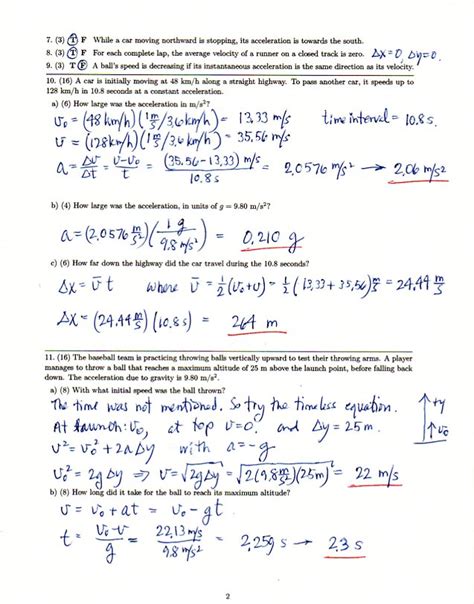 7. (3) T F While a car moving northward is stopping, its acceleration is towards the south.
8. (3) T F For each complete lap, the average velocity of a runner on a closed track is zero. Δx=0, Δy=0.
9. (3) T F A ball's speed is decreasing if its instantaneous acceleration is the same direction as its velocity.
10. (16) A car is initially moving at 48 km/h along a straight highway. To pass another car, it speeds up to
128 km/h in 10.8 seconds at a constant acceleration.
a) (6) How large was the acceleration in m/s²?
v₀ = (48 km/h)(1 m/s / 3.6 km/h) = 13.33 m/s time interval = 10.8 s.
v = (128 km/h)(1 m/s / 3.6 km/h) = 35.56 m/s
a = Δv/Δt = (v-v₀)/t = (35.56-13.33) m/s / 10.8 s = 2.0576 m/s² → 2.06 m/s²
b) (4) How large was the acceleration, in units of g = 9.80 m/s²?
a = (2.0576 m/s²)(1 g / 9.8 m/s²) = 0.210 g
c) (6) How far down the highway did the car travel during the 10.8 seconds?
Δx = v̄ t where v̄ = ½(v₀+v) = ½(13.33 + 35.56) m/s = 24.44 m/s
Δx = (24.44 m/s)(10.8 s) = 264 m
11. (16) The baseball team is practicing throwing balls vertically upward to test their throwing arms. A player
manages to throw a ball that reaches a maximum altitude of 25 m above the launch point, before falling back
down. The acceleration due to gravity is 9.80 m/s².
a) (8) With what initial speed was the ball thrown?
The time was not mentioned. So try the timeless equation. +y
At launch: v₀, at top v=0. and Δy = 25 m. v₀
v² = v₀² + 2a Δy with a = -g
v₀² = 2gΔy → v = √2gΔy = √2(9.8 m/s²)(25 m) = 22 m/s
b) (8) How long did it take for the ball to reach its maximum altitude?
v = v₀ + at = v₀ - gt
t = (v₀-v)/g = 22.13 m/s / 9.8 m/s² = 2.259 s → 2.3 s
2